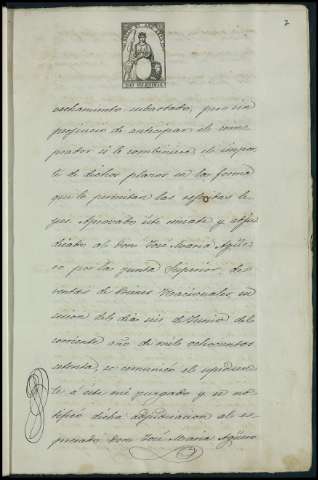 2
vechamiento subastado, pero sin
perjuicio de anticipar el com-
prador si le combiniera el impor-
te de dichos plazos en la forma
que le permitan las espresas le-
yes. Aprovado este remate y adju-
dicado al Don José Maria Agüe-
ro por la Junta Superior de
ventas de Bienes Nacionales en
sesion del dia seis de Junio del
corriente año de mil ochocientos
setenta, se comunicó el espedien-
te á este mi juzgado y se no-
tificó dicha adjudicacion al es-
presado Don José Maria Agüero